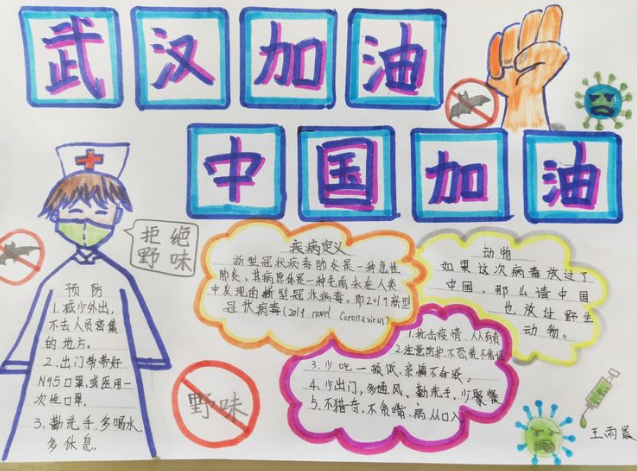 武汉加油
中国加油
拒绝
野味
预防
1.减少外出,
不去人员密集
的地方。
2.出门带带好
N95口罩或医用一
次性口罩.
3.勤洗手.多喝水.
多休息..
疾病定义
新型冠状病毒肺炎是一种急性
肺炎,其病原体是一种先前未在人类
中发现的新型冠状病毒,即2019新型
冠状病毒(2019 novel Coronavirus)
动物
如果这次病毒放过了
中国,那么请中国
也放过野生
动物。
1.抗击疫情,人人有责
2.注意防护,不恐慌不
3.少吃一顿饭、亲情不会淡。
4.少出门,多通风,勤洗手,少聚餐
5.不猎奇,不贪嘴,病从口入
野味
王雨晨